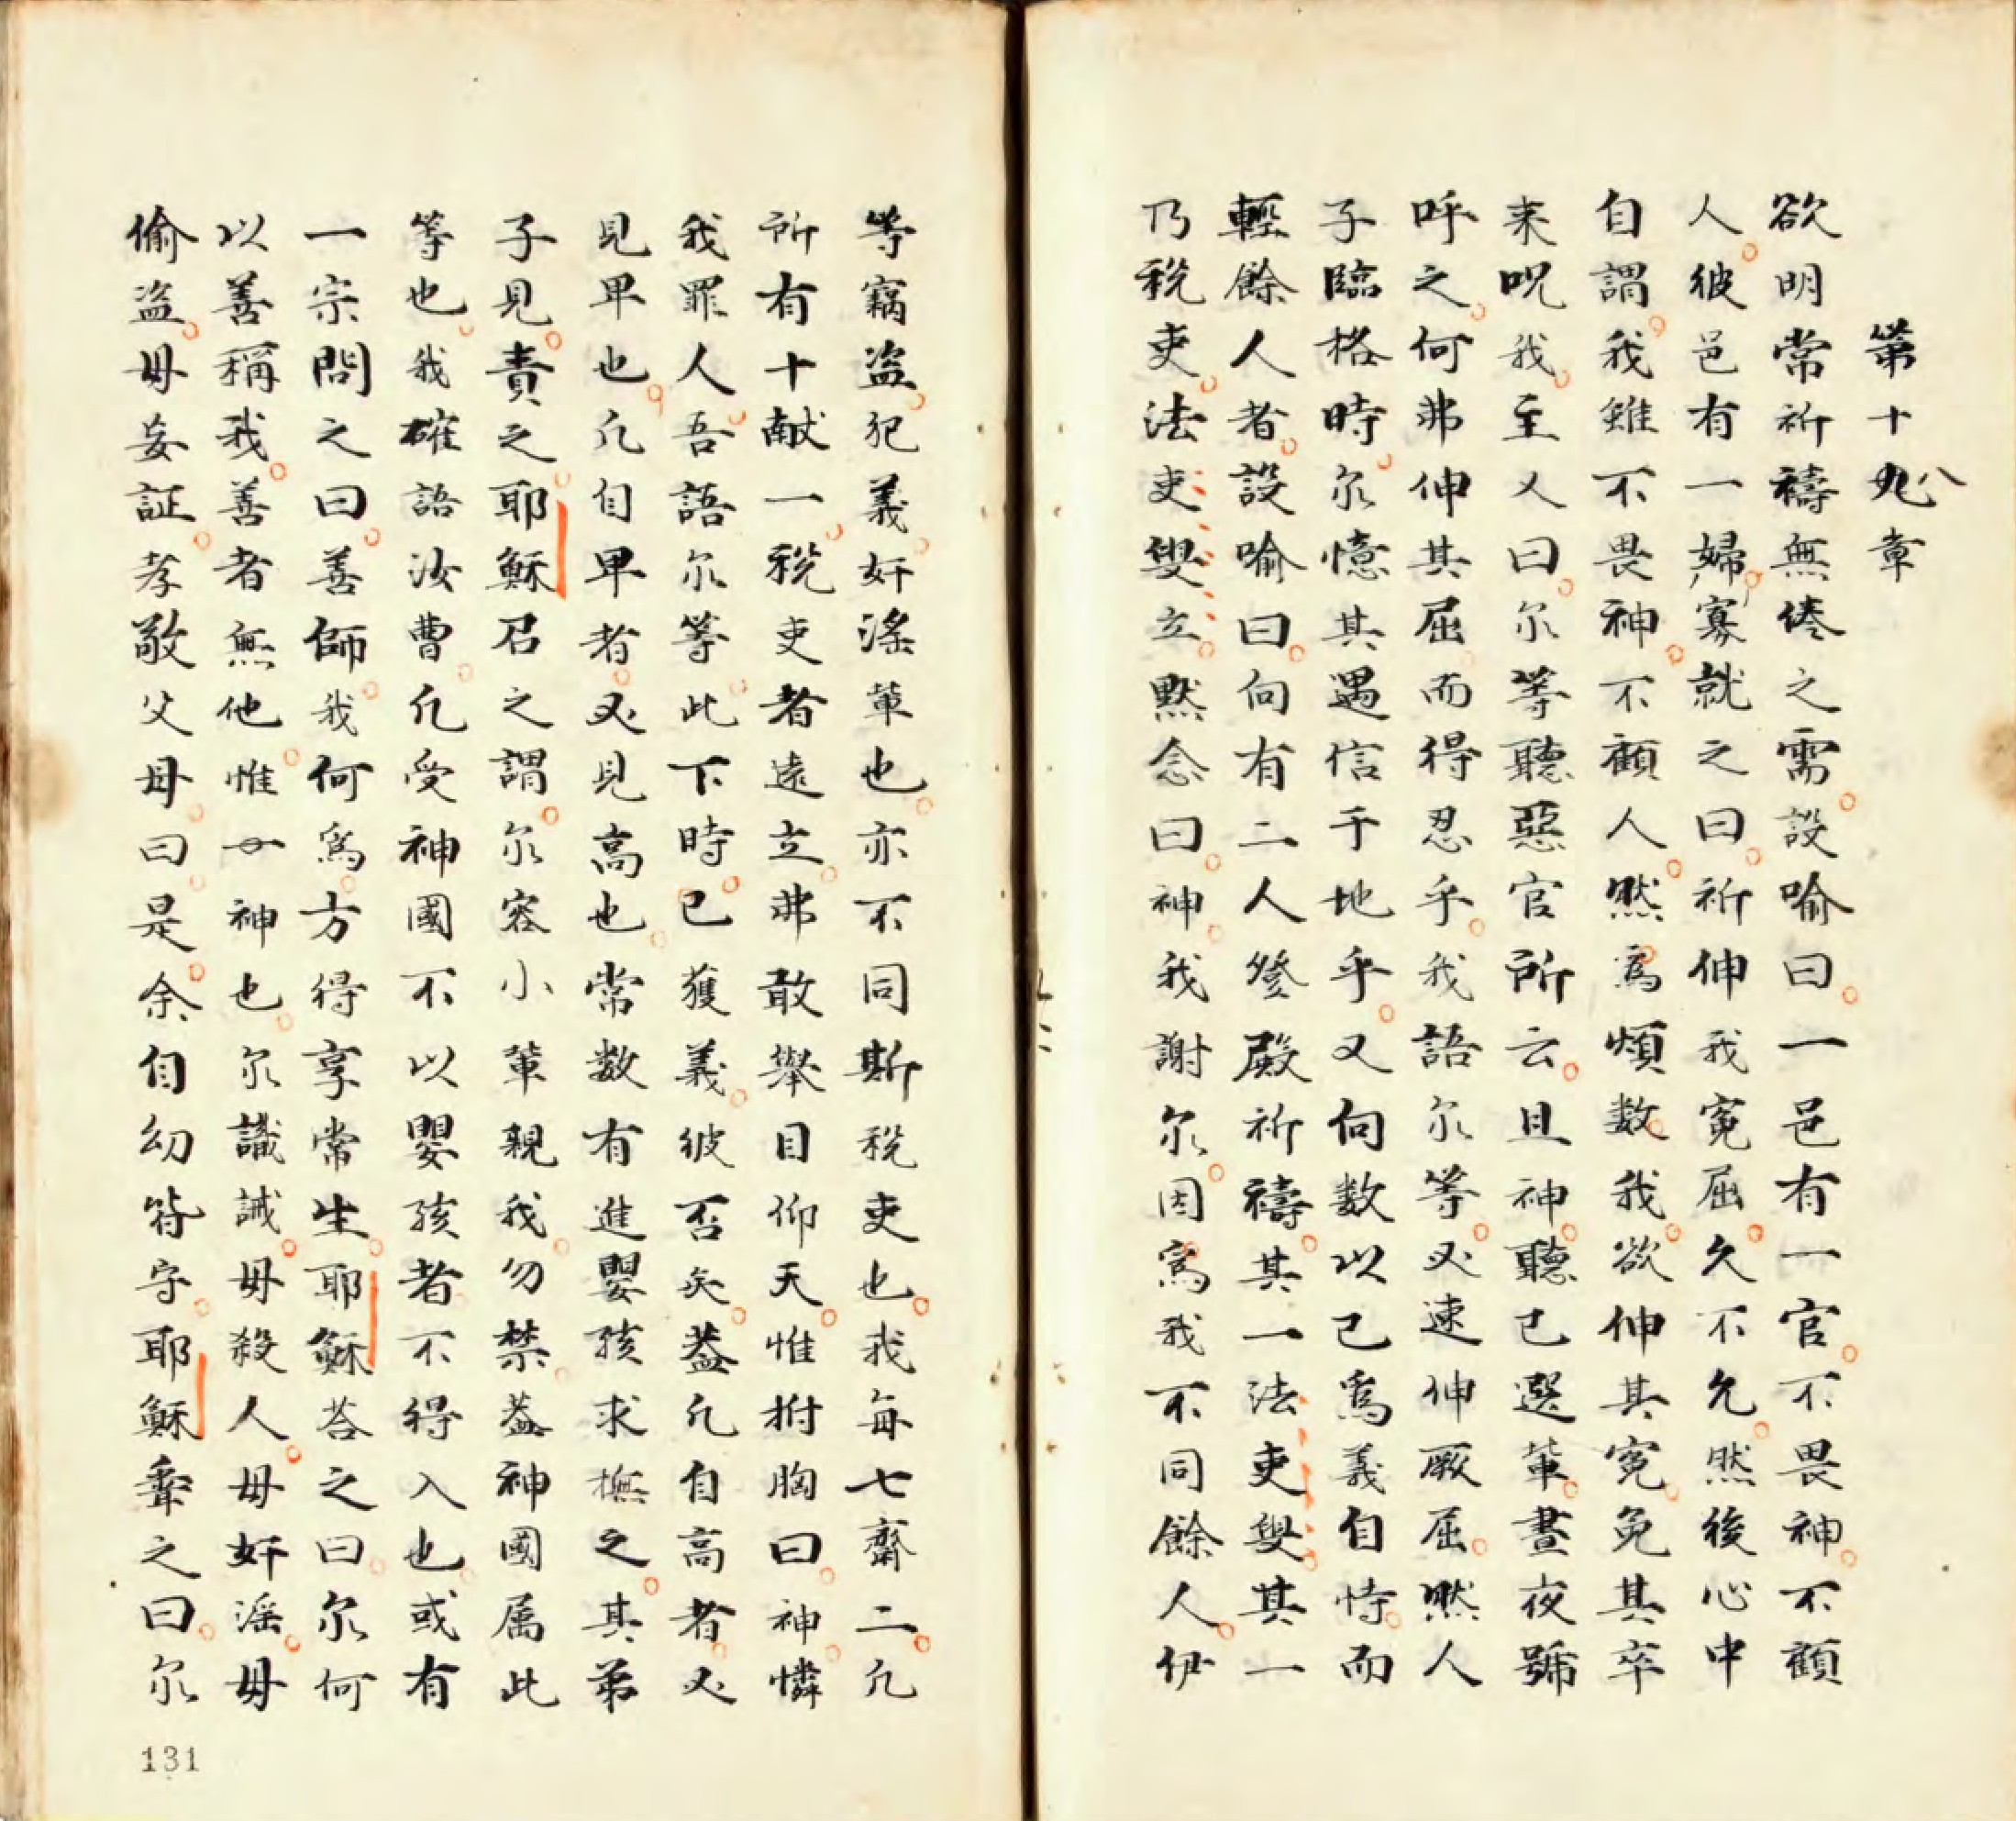 第十九八章
欲明常祈禱無倦之需設喻曰一邑有一官不畏神不顧
人彼邑有一婦寡就之曰祈伸我寃屈久不允然後心中
自謂我雖不畏神不顧人然為煩数我欲伸其寃免其卒
来呪我主人曰尔等聽惡官所云且神聽己選軰晝夜號
呼之何弗伸其屈而得忍乎我語尔等必速伸厥屈然人
子臨格時尔憶其遇信于地乎又向数以己為義自恃而
輕餘人者設喻曰向有二人登殿祈禱其一法吏叟其一
乃税吏法吏叟立黙念曰神我謝尔因為我不同餘人伊
等竊盗犯義奸滛軰也亦不同斯税吏也我每七齋二凢
所有十献一税吏者遠立弗敢舉目仰天惟拊胸曰神憐
我罪人吾語尔等此下時已獲義彼否矣葢凢自高者必
見卑也凢自卑者必見高也常数有進嬰孩求撫之其弟
子見責之耶穌召之謂尔容小軰親我勿禁葢神國属此
等也我確語汝曹凢受神國不以嬰孩者不得入也或有
一宗問之曰善師我何為方得享常生耶穌荅之曰尔何
以善稱我善者無他惟一神也尔識誡毋殺人毋奸滛毋
偷盗毋妄証孝敬父母曰是余自幼符守耶穌聽之曰尔
131